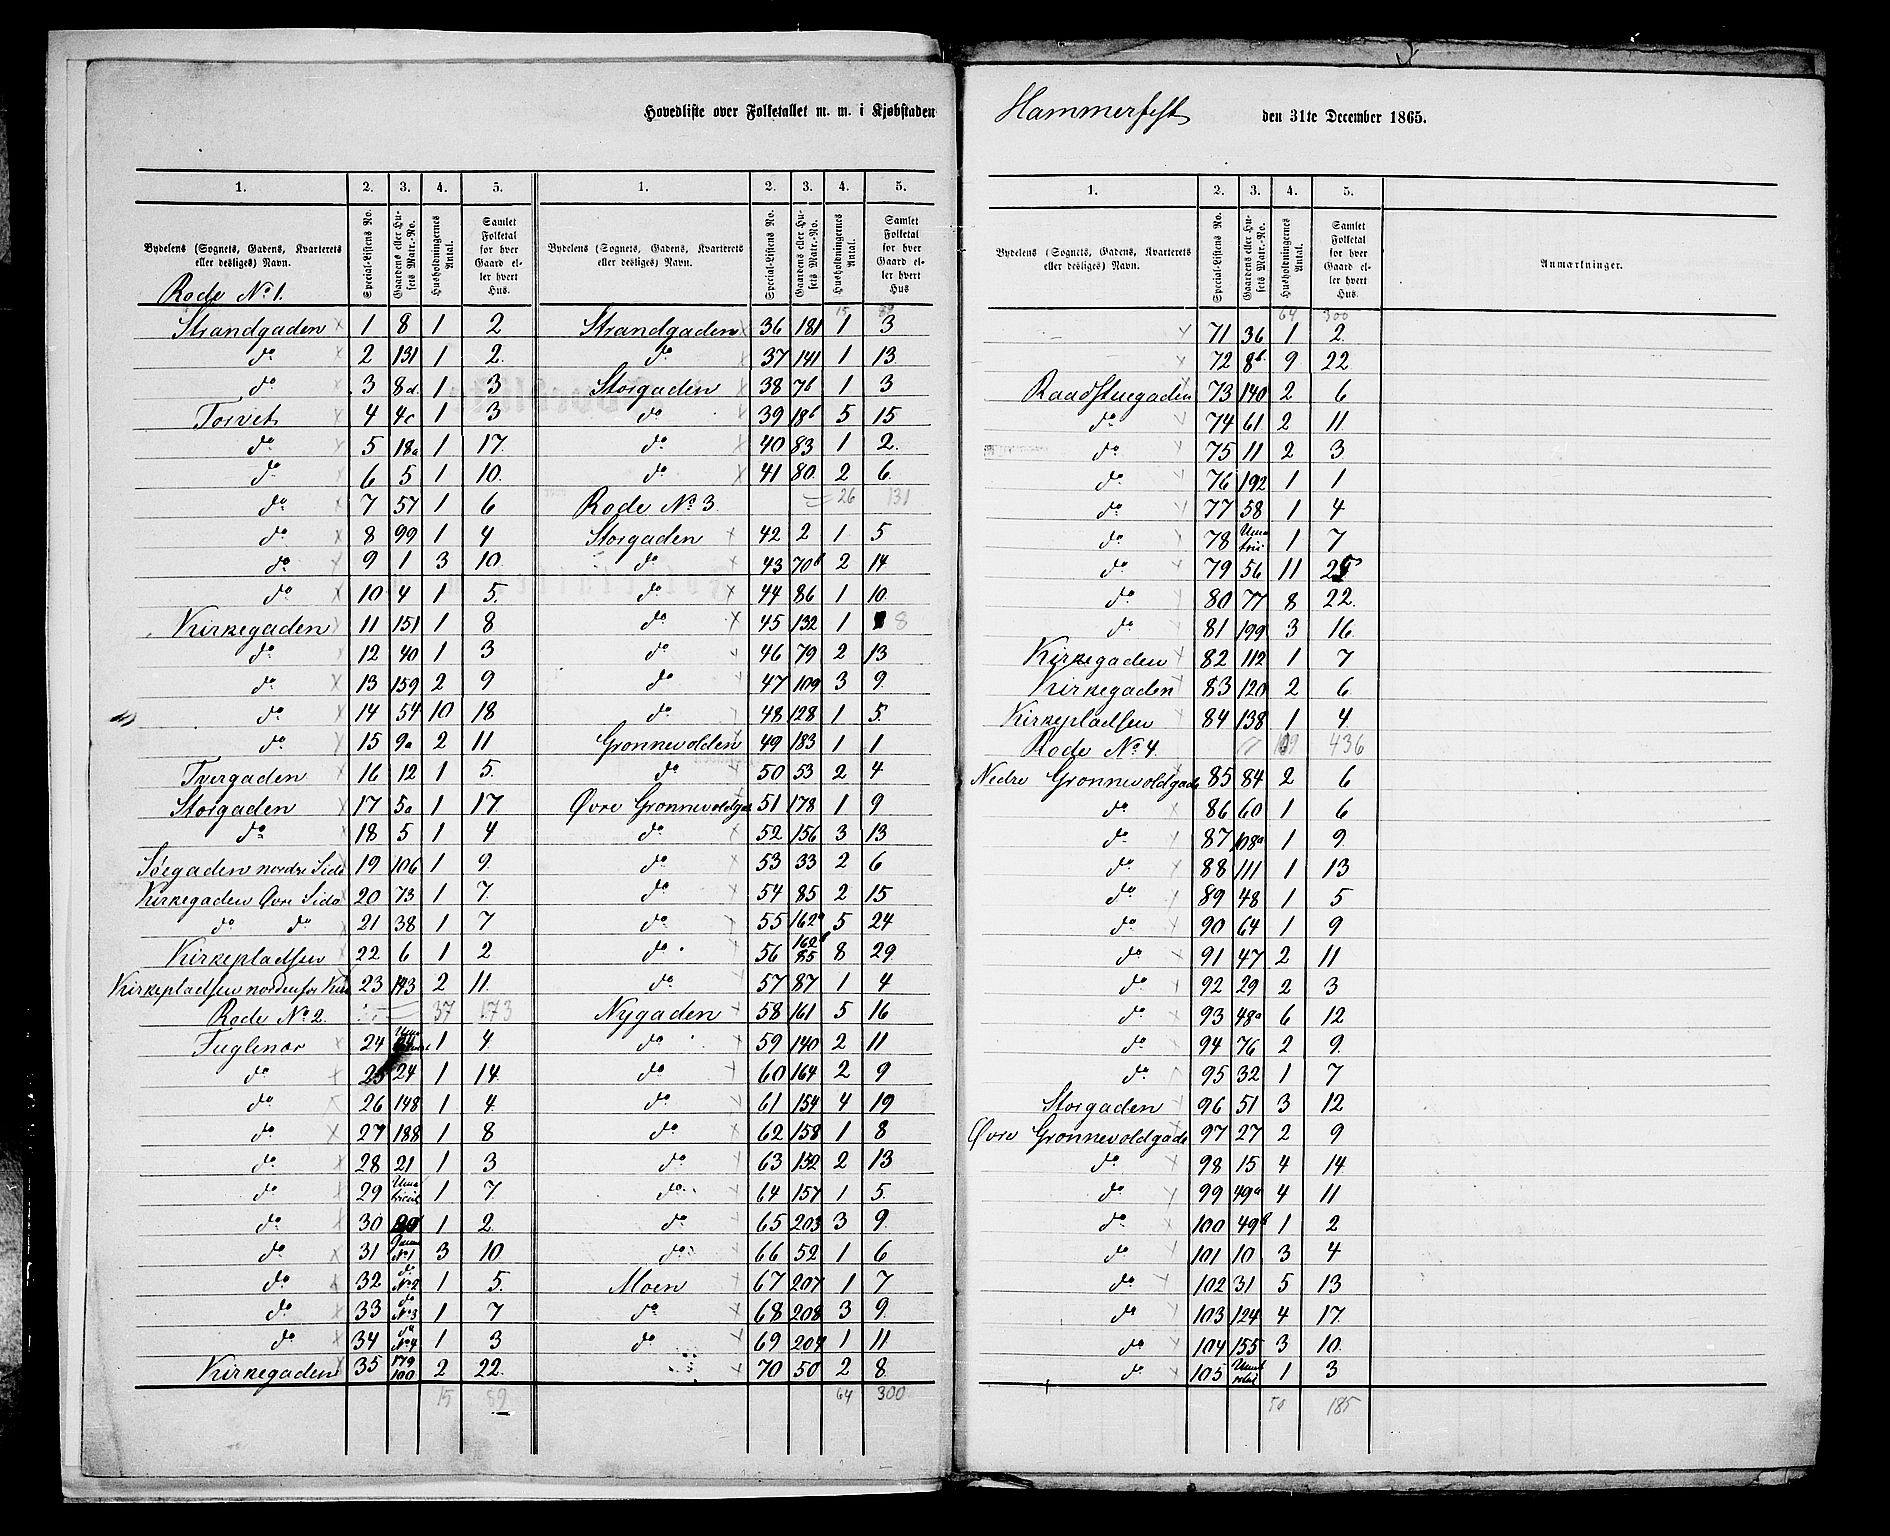 Hovedliste over Folketallet m. m. i Kjøbstaden Hammerfest den 31te December 1865.
1. 2. 3. 4. 5. 1. 2. 3. 4. 5.
Bydelens (Sognets, Gadens, Kvarterets eller desliges) Navn. Special-Listens No. Gaardens eller Husets Matr.-No. Husholdningernes Antal. Samlet Folketal for hver Gaard eller hvert Hus.
Bydelens (Sognets, Gadens, Kvarterets eller desliges) Navn. Special-Listens No. Gaardens eller Husets Matr.-No. Husholdningernes Antal. Samlet Folketal for hver Gaard eller hvert Hus
Rode No 1.
Strandgaden 1 8 1 2
do 2 131 1 2.
do 3 8d 1 3
Torvet 4 4c 1 3
do 5 18a 1 17.
do 6 5 1 10.
do 7 57 1 6
do 8 99 1 4
do 9 1 3 10.
do 10 4 1 5.
Kirkegaden 11 151 1 8
do 12 40 1 3
do 13 159 2 9
do 14 54 10 18
do 15 9a 2 11
Tvergaden 16 12 1 5.
Storgaden 17 5a 1 17
do 18 5 1 4
Søegaden nordre Side 19 106 1 9.
Kirkegaden Øvre Side 20 73 1 7.
do do 21 38 1 7
Kirkepladsen 22 6 1 2
Kirkepladsen nordenfor 23 143 2 11.
Rode No 2. 37 173
Fuglenær 24 1 4
do 25 24 1 14.
do 26 148 1 4.
do 27 188 1 8
do 28 21 1 3
do 29 1 7.
do 30 1 2
do 31 No 1 3 10
do 32 do No 2 1 5.
do 33 do No 3 1 7
do 34 do No 4 1 3
Kirkegaden 35 179 100 2 22.
15 89
15 89
Strandgaden 36 181 1 3
do 37 141 1 13.
Storgaden 38 76 1 3
do 39 18b 5 15
do 40 83 1 2.
do 41 80 2 6.
Rode No 3. 26 131
Storgaden 42 2 1 5
do 43 70b 2 14
do 44 86 1 10.
do 45 132 1 8
do 46 79 2 13
do 47 109 3 9.
do 48 128 1 5.
Grønnevolden 49 183 1 1
do 50 53 2 4
Øvre Grønnevoldgade 51 178 1 9
do 52 156 3 13
do 53 33 2 6
do 54 85 2 15
do 55 162a 5 24
do 56 162b 85 8 29
do 57 87 1 4
Nygaden 58 161 5 16
do 59 140 2 11
do 60 164 2 9
do 61 154 4 19
do 62 158 1 8
do 63 152 2 13
do 64 157 1 5.
do 65 203 3 9.
do 66 52 1 6
Moen 67 207 1 7
do 68 208 3 9.
do 69 204 1 11
70 50 2 8.
64 300
1. 2. 3. 4. 5.
Bydelens (Sognets, Gadens, Kvarterets eller desliges) Navn. Special-Listens No. Gaardens eller Husets Matr.-No. Husholdningernes Antal. Samlet Folketal for hver Gaard eller hvert Hus. Anmærkninger.
64 300
71 36 1 2.
72 8b. 9 22
Raadstuegaden 73 140 2 6
do 74 61 2 11
do 75 11 2 3
do 76 192 1 1
do 77 58 1 4
do 78 1 7
do 79 56 11 25
do 80 77 8 22.
do 81 199 3 16.
Kirkegaden 82 112 1 7
Kirkegaden 83 120 2 6.
Kirkepladsen 84 138 1 4.
Rode No 4. 109 436
Nedre Grønnevoldgade 85 84 2 6
do 86 60 1 6
do 87 108a 1 9.
do 88 111 1 13
do 89 48 1 5
do 90 64 1 9
do 91 47 2 11
do 92 29 2 3
do 93 48a 6 12
do 94 76 2 9.
do 95 32 1 7
Storgaden 96 51 3 12
Øvre Grønnevoldgade 97 27 2 9
do 98 15 4 14.
do 99 49a 4 11
do 100 49b 1 2
do 101 10 3 4
do 102 31 5 13
do 103 124 4 17.
do 104 155 3 10.
do 105 1 3
50 185